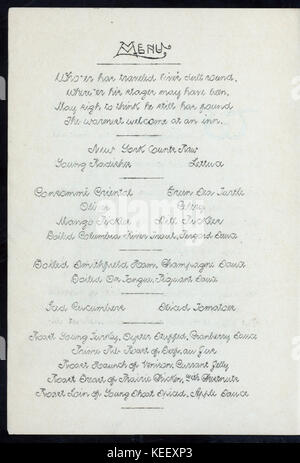 MENU
Who'er has traveled life's dull round,
Where'er his stages may have been,
May sigh to think he still has found
The warmest welcome at an inn.
New York Counts Raw
Young Radishes Lettuce
Consommé Oriental Green Sea Turtle
Olives Celery
Mango Pickles Dill Pickles
Boiled Columbia River Trout, Sauce
Boiled Smithfield Ham, Champagne Sauce
Boiled Ox Tongue, Piquant Sauce
Iced Cucumbers Sliced Tomatoes
Roast Young Turkey, Oyster Stuffed, Cranberry Sauce
Prime Rib Roast of Beef, au Jus
Roast Haunch of Venison, Currant Jelly
Roast Breast of Prairie Chicken, with Chestnuts
Roast Loin of Young Shoat, Apple Sauce
alamy
alamy
Image ID: KEEXP3
www.alamy.com